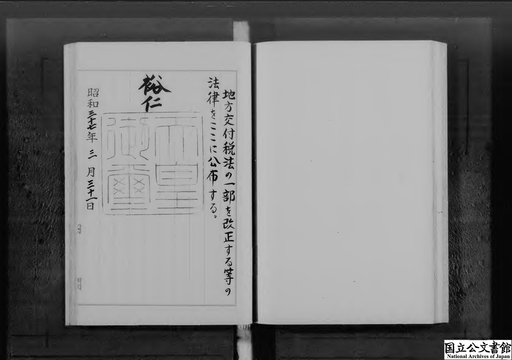 地方交付税法の一部を改正する等の
法律をここに公布する。
裕仁
天皇
御璽
昭和三十七年三月三十一日
国立公文書館
National Archives of Japan